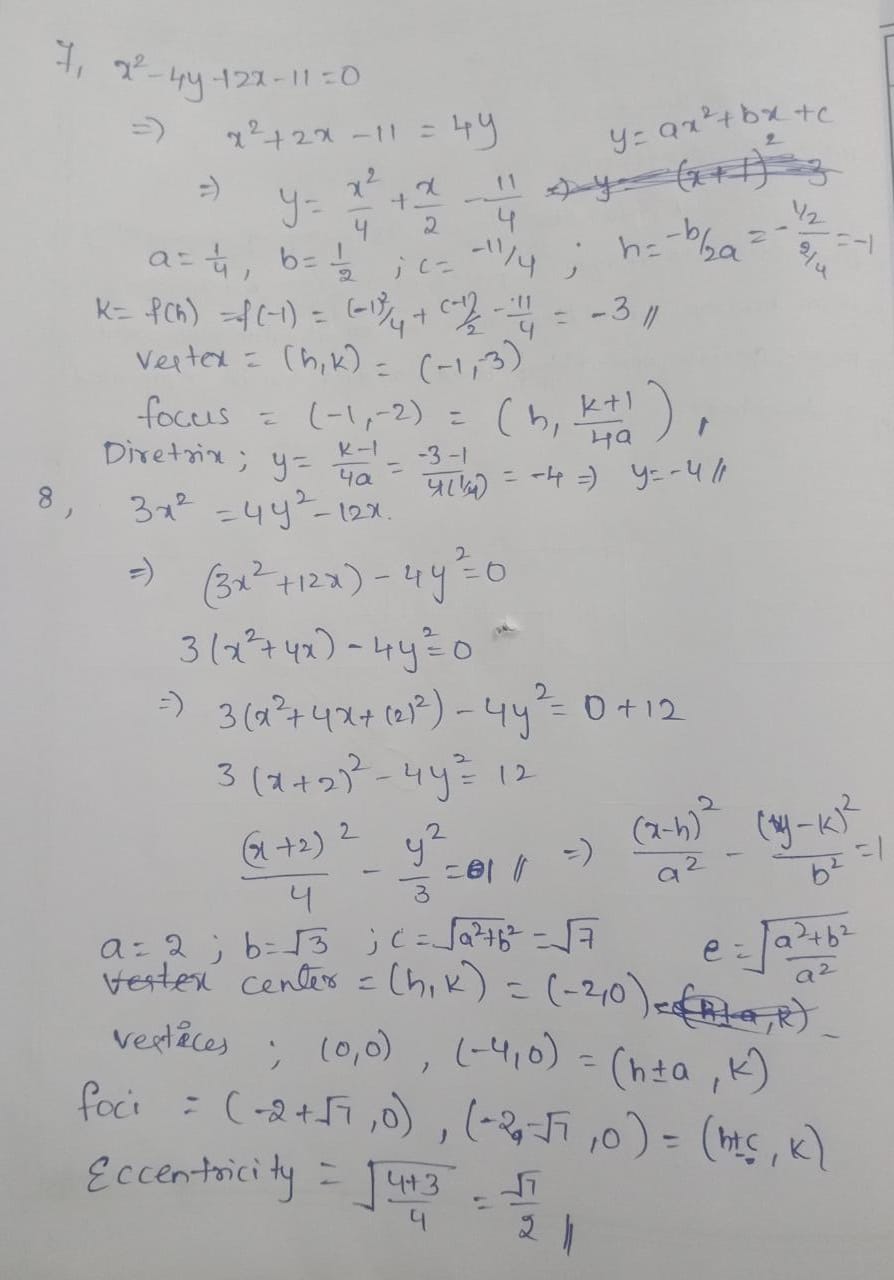 7, x²-4y+2x-11=0
=> x²+2x-11 = 4y y=ax²+bx+c
=> y= x²/4 + x/2 - 11/4
a=1/4, b=1/2 ; c= -11/4 ; h=-b/2a = -(1/2)/(2/4) = -1
K= f(h) =f(-1) = (-1)²/4 + (-1)/2 - 11/4 = -3 //
vertex = (h,k) = (-1,-3)
focus = (-1,-2) = (h, (k+1)/4a),
Diretrix; y= (k-1)/4a = (-3-1)/4(1/4) = -4 => y=-4//
8, 3x² =4y²-12x.
=> (3x²+12x)-4y²=0
3(x²+4x)-4y²=0
=> 3(x²+4x+(2)²)-4y²= 0+12
3(x+2)²-4y²= 12
(x+2)²/4 - y²/3 = 1 // => (x-h)²/a² - (y-k)²/b² =1
a=2 ; b=√3 ; c=√(a²+b²) =√7 e=√((a²+b²)/a²)
center = (h,k) = (-2,0)
vertices ; (0,0), (-4,0) = (h±a,k)
foci = (-2+√7,0), (-2-√7,0) = (h±c,k)
Eccentricity = √((4+3)/4) = √7/2 //